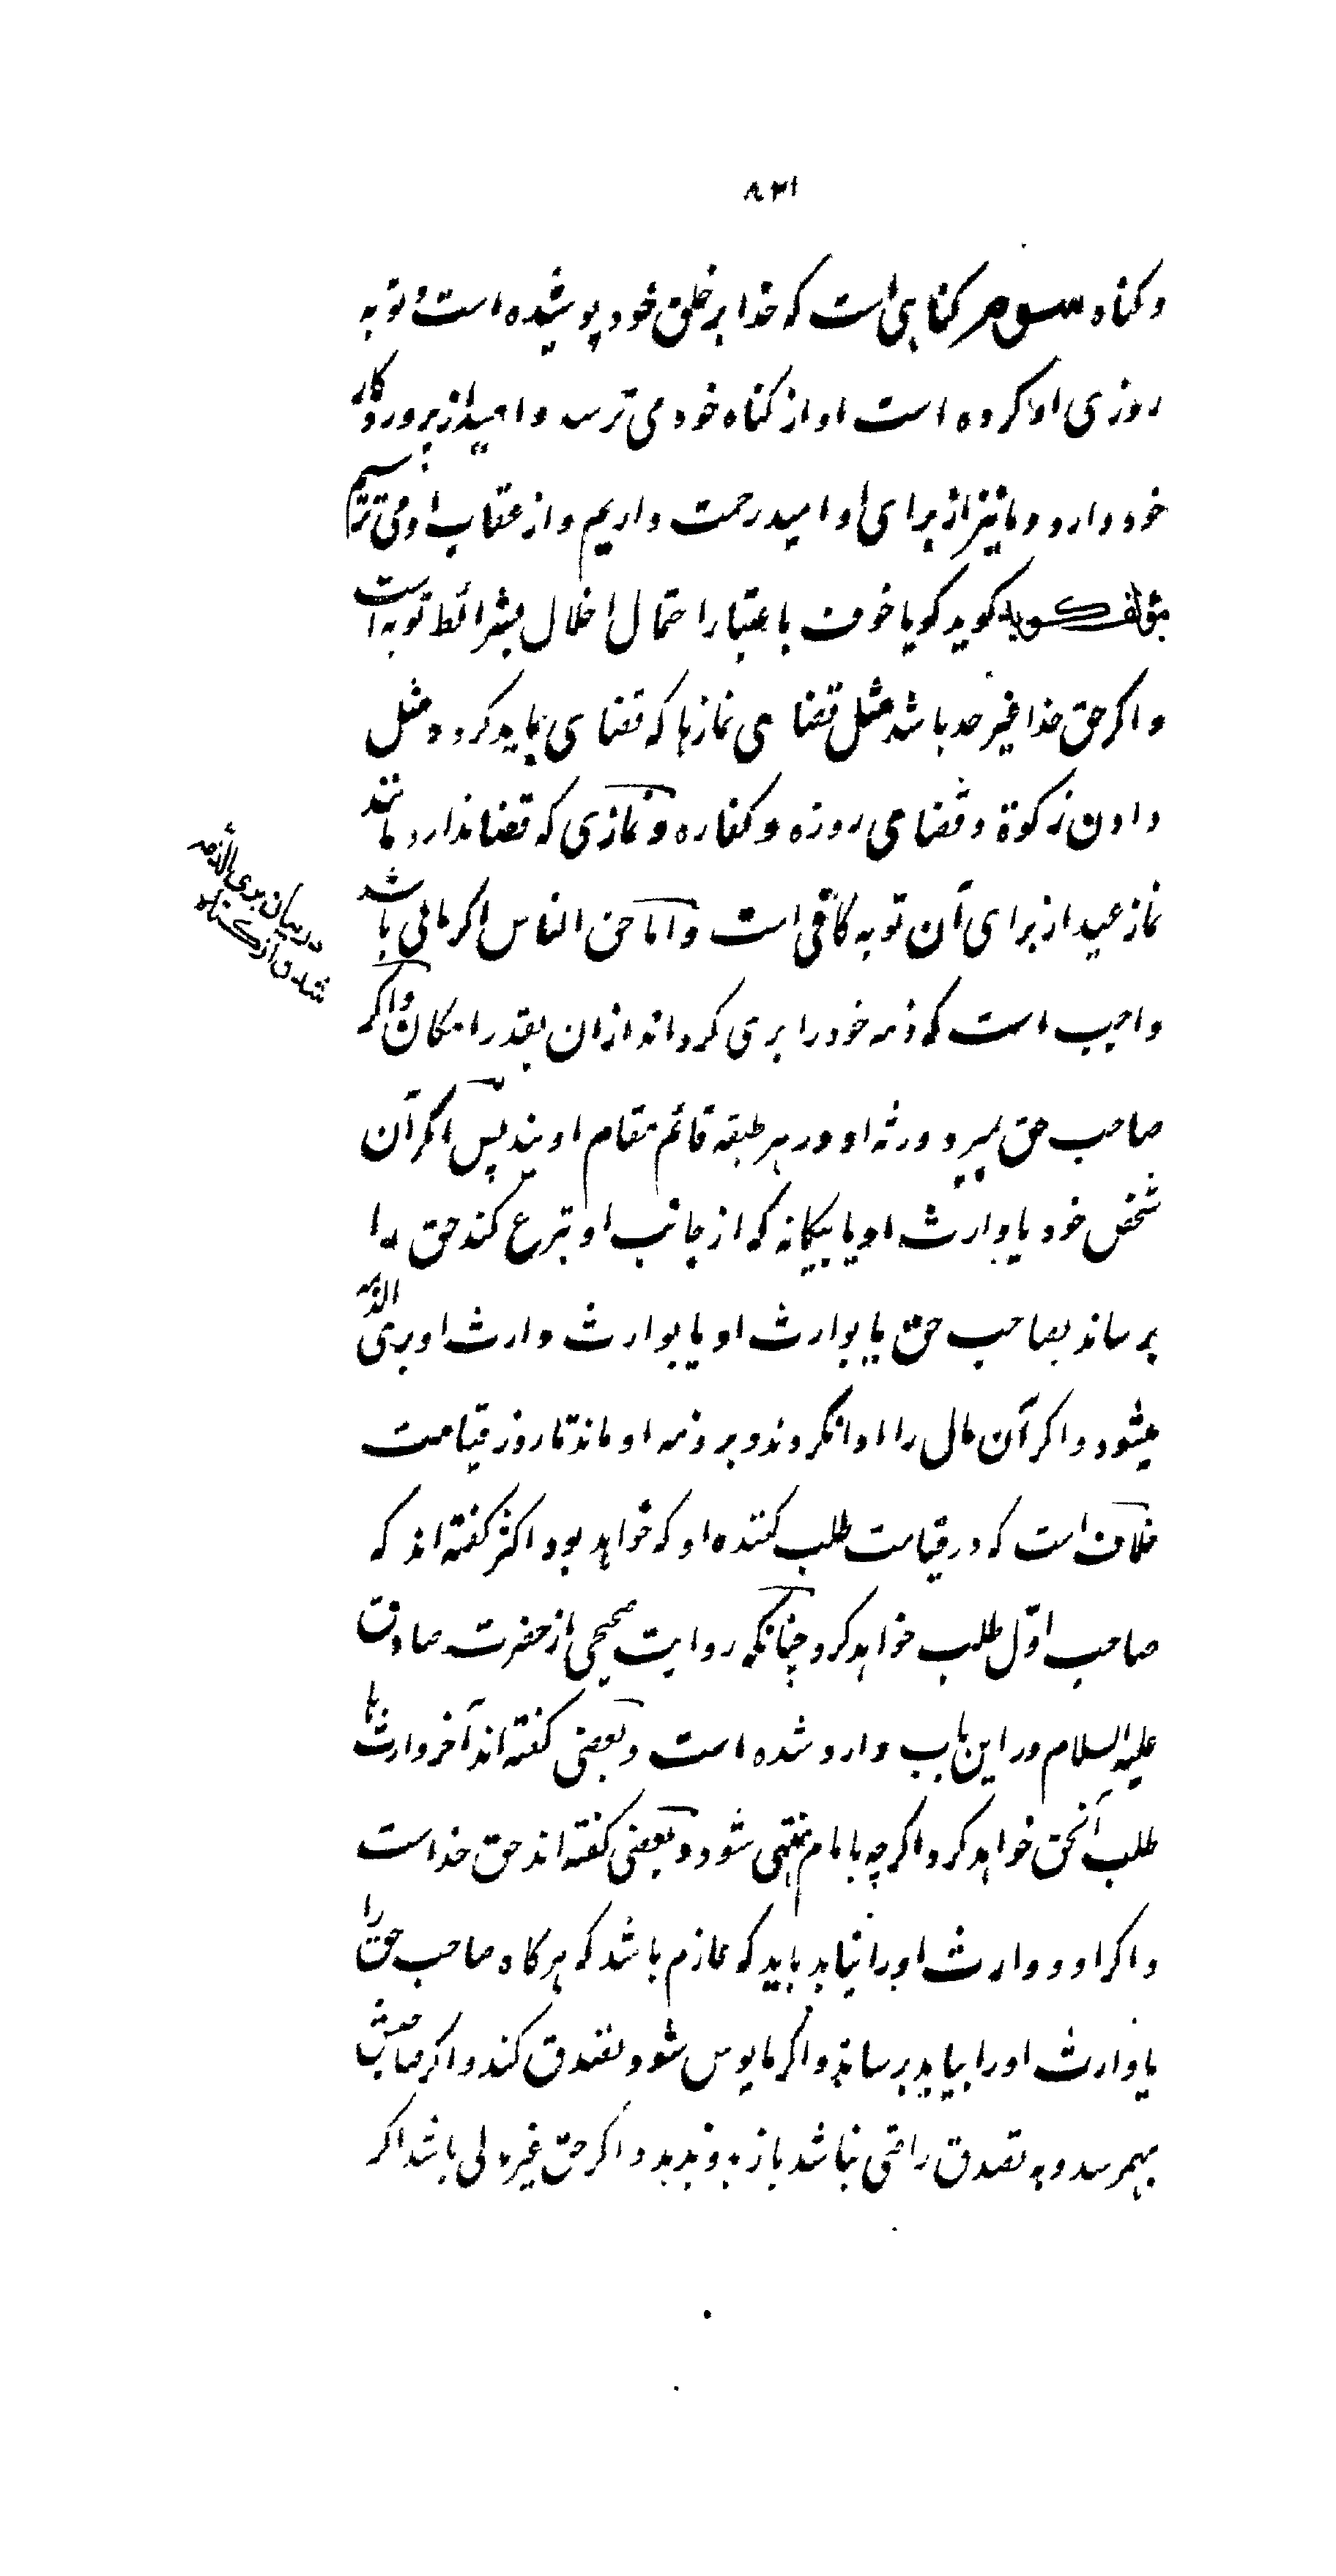 ۸۲۱
و کناه سوم کناهی است که خدا بر خلق خود پوشیده است و توبه
روزی او کرده است او از کناه خود می ترسد و امید از پروردکار
خود دارد و ما نیز از برای او امید رحمت داریم و از عقاب او می ترسیم
مؤلف کوید کویا خوف باعتبار احتمال اخلال بشرائط توبه است
و اکر حق خدا غیر حد باشد مثل قضای نمازها که قضا می باید کرد و مثل
دادن زکوة و قضای روزه و کفاره و نمازی که قضا ندارد مانند
نماز عید از برای آن توبه کافی است و اما حق الناس اکر مالی باشد
واجب است که ذمه خود را بری کرداند از ان بقدر امکان و اکر
صاحب حق بمیرد ورثه او در هر طبقه قائم مقام اویند پس اکر آن
شخص خود یا وارث او یا بیکانه که از جانب او تبرع کند حق را
برساند بصاحب حق یا بوارث او یا بوارث وارث او بری الذمه
میشود و اکر آن مال را ادا نکردند و بر ذمه او ماند تا روز قیامت
خلاف است که در قیامت طلب کننده او که خواهد بود اکثر کفته اند که
صاحب اوّل طلب خواهد کرد چنانکه روایت صحیحی از حضرت صادق
علیه السلام در این باب وارد شده است و بعضی کفته اند آخر وارثها
طلب آنحق خواهد کرد اکرچه بامام منتهی شود و بعضی کفته اند حق خداست
و اکر او و وارث او را نیابد باید که عازم باشد که هرکاه صاحب حق را
یا وارث او را بیابد برساند و اکر مایوس شود تصدق کند و اکر صاحبش
بهمرسد و به تصدق راضی نباشد باز به او بدهد و اکر حق غیر مالی باشد اکر
در بیان بری الذمه
شدن از کناه